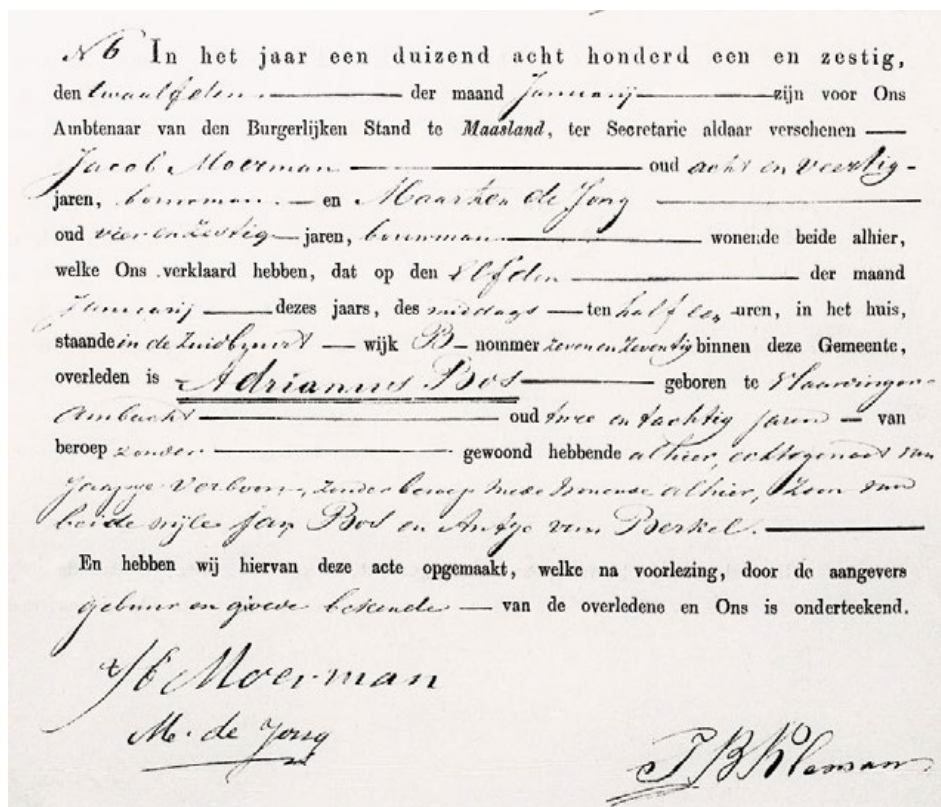 N 6 In het jaar een duizend acht honderd een en zestig,
den twaalfden der maand Januarij zijn voor Ons
Ambtenaar van den Burgerlijken Stand te Maasland, ter Secretarie aldaar verschenen
Jacob Moerman oud acht en veertig
jaren, bouwman en Maarten de Jong
oud vier en zestig jaren, bouwman wonende beide alhier,
welke Ons verklaard hebben, dat op den Elfden der maand
Januarij dezes jaars, des middags ten half een uren, in het huis,
staande in de Zuidbuurt wijk B nommer zeven en zeventig binnen deze Gemeente,
overleden is Adrianus Bos geboren te Vlaardinger
Ambacht oud twee en tachtig jaren van
beroep zonder gewoond hebbende alhier, echtgenoot van
Verboon, zonder beroep mede wonende alhier, Zoon van
beide wijle Jan Bos en Antje van Berkel.
En hebben wij hiervan deze acte opgemaakt, welke na voorlezing, door de aangevers
gebuur en goede bekende van de overledene en Ons is onderteekend.
Moerman
M. de Jong